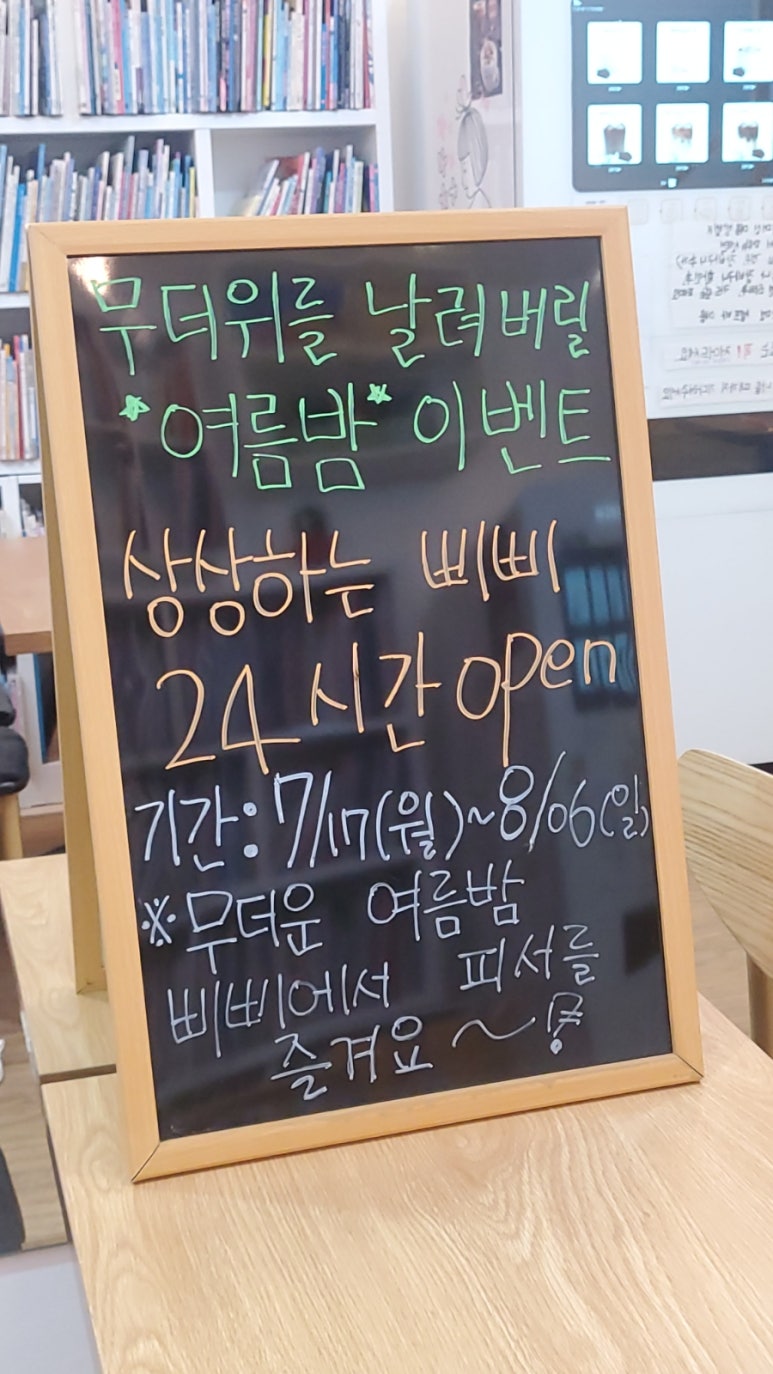 무더위를 날려버릴
*여름밤* 이벤트
상상하는 삐삐
24시간 open
기간: 7/17(월)~8/06(일)
※무더운 여름밤
삐삐에서 피서를
즐겨요~!